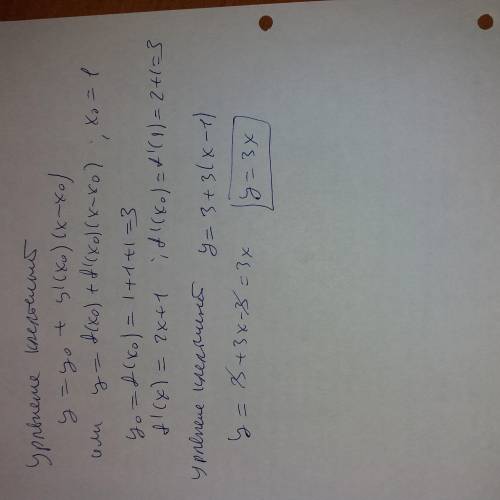 Уравнение касательной
y = y₀ + y'(x₀)(x-x₀)
или y = f(x₀) + f'(x₀)(x-x₀) ; x₀ = 1
y₀ = f(x₀) = 1+1+1=3
f'(x) = 2x+1 ; f'(x₀) = f'(1) = 2+1=3
уравнение касательной y = 3+3(x-1)
y = 3+3x-3=3x y = 3x